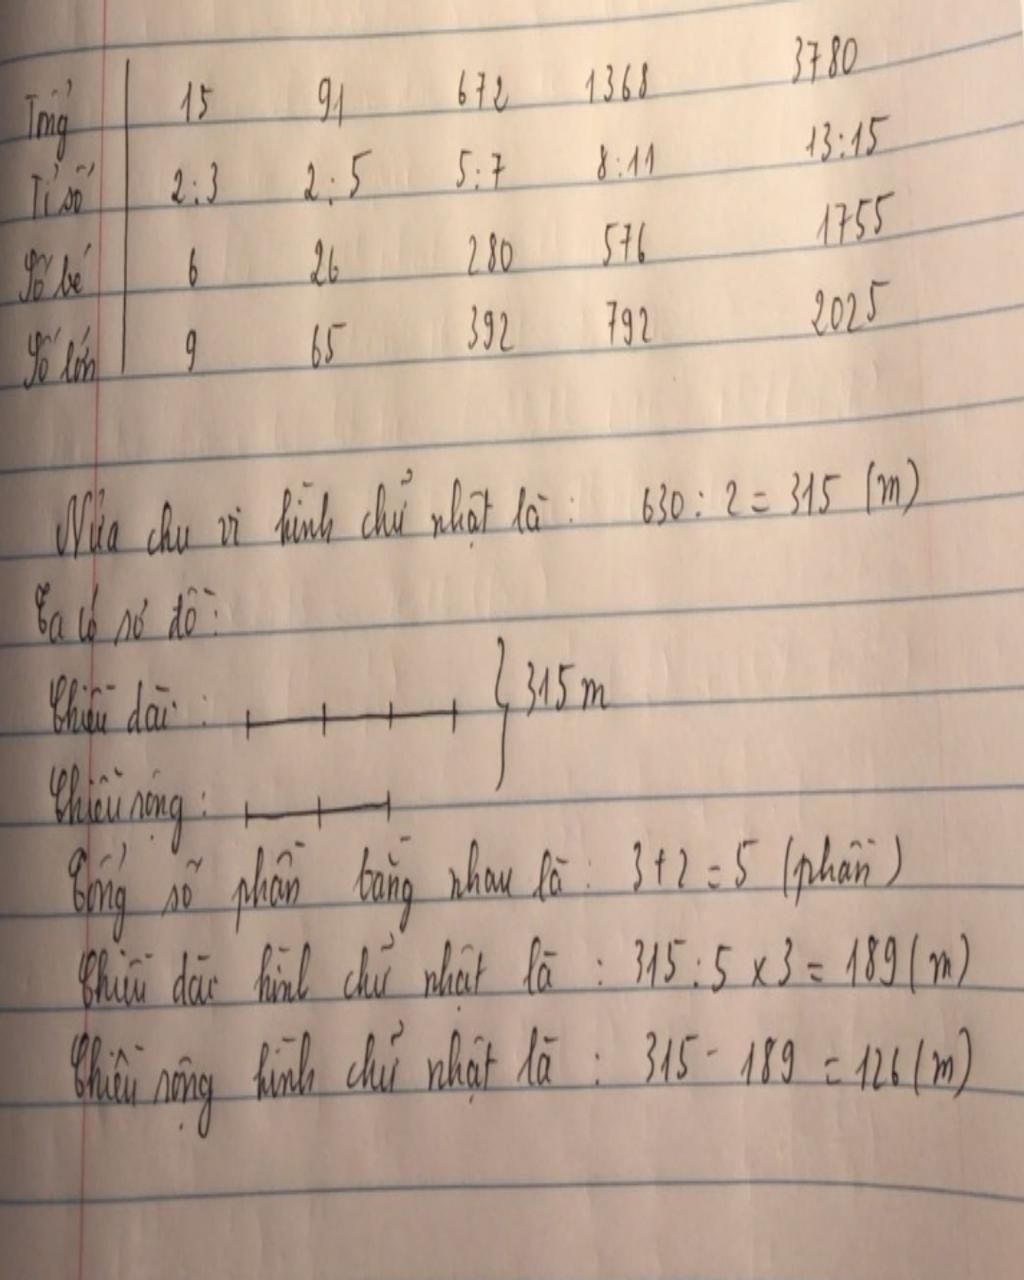 Tổng 15 91 672 1368 3780
Tỉ số 2:3 2:5 5:7 8:11 13:15
Số bé 6 26 280 576 1755
Số lớn 9 65 392 792 2025
Nửa chu vi hình chữ nhật là: 630 : 2 = 315 (m)
Ta có sơ đồ:
Chiều dài:
315 m
Chiều rộng:
Tổng số phần bằng nhau là: 3+2=5 (phần)
Chiều dài hình chữ nhật là: 315 : 5 x 3 = 189 (m)
Chiều rộng hình chữ nhật là: 315 - 189 = 126 (m)